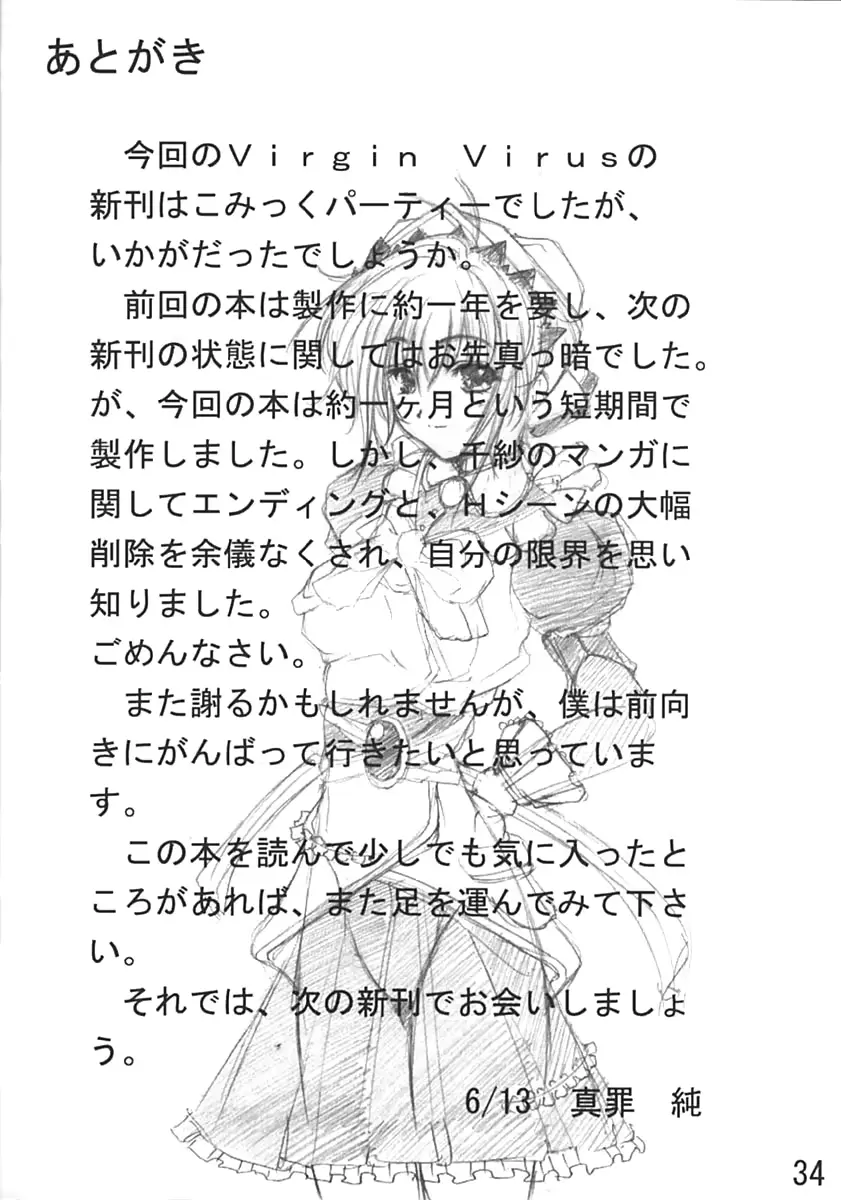 あとがき
今回のＶｉｒｇｉｎ　Ｖｉｒｕｓの
新刊はこみっくパーティーでしたが、
いかがだったでしょうか。
前回の本は製作に約一年を要し、次の
新刊の状態に関してはお先真っ暗でした。
が、今回の本は約一ヶ月という短期間で
製作しました。しかし、千紗のマンガに
関してエンディングと、Ｈシーンの大幅
削除を余儀なくされ、自分の限界を思い
知りました。
ごめんなさい。
また謝るかもしれませんが、僕は前向
きにがんばって行きたいと思っていま
す。
この本を読んで少しでも気に入ったと
ころがあれば、また足を運んでみて下さ
い。
それでは、次の新刊でお会いしましょ
う。
6/13　真罪　純
34